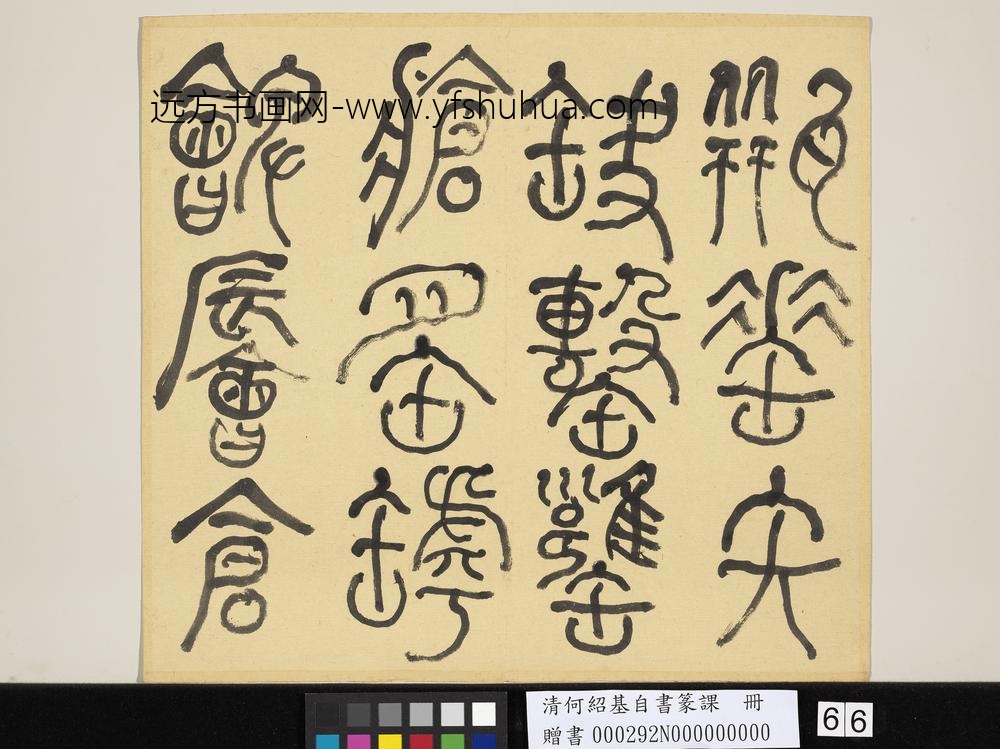 矢
缺罊罋
牄罅
朇䢈倉
远方书画网-www.yfshuhua.com
清何紹基自書篆課 冊
贈書 000292N000000000
66